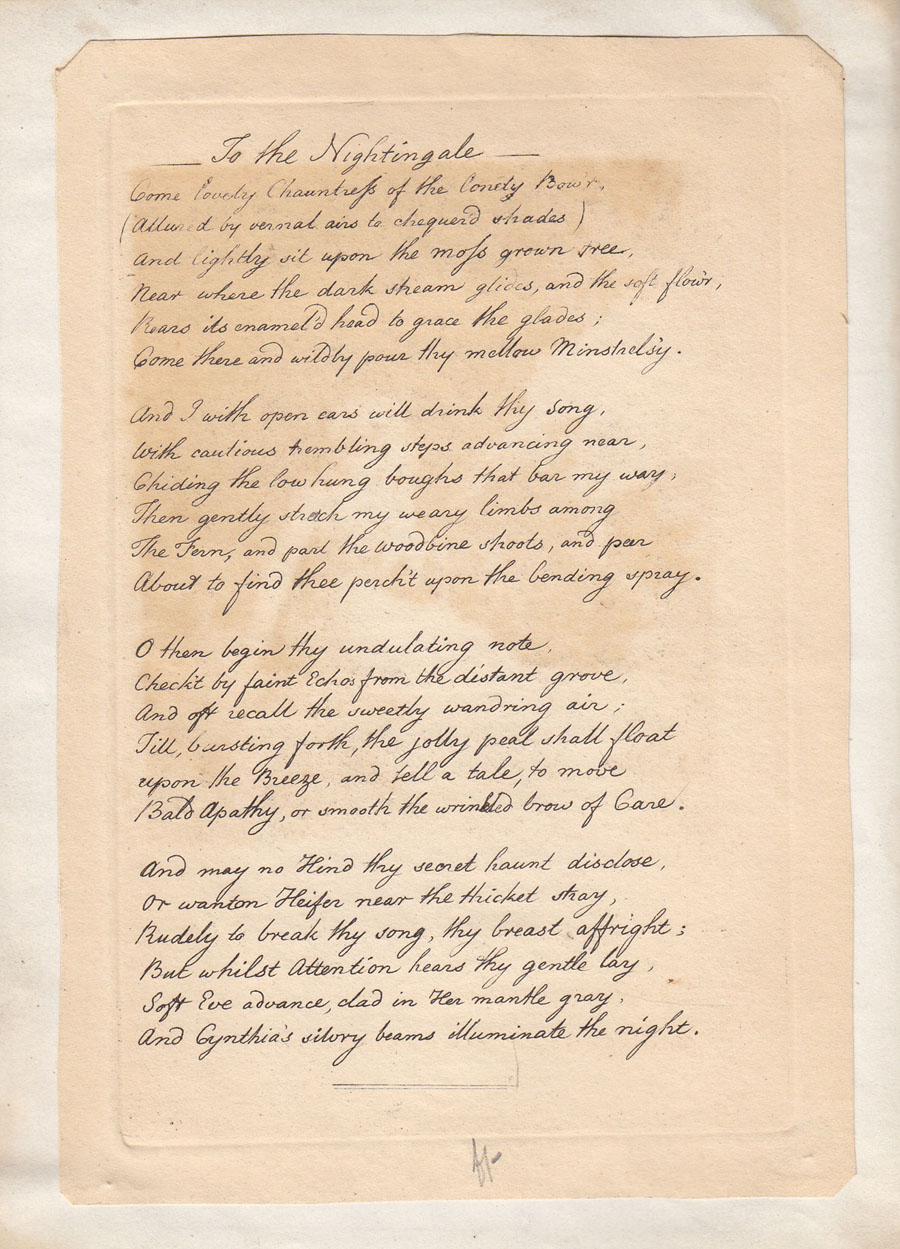 To the Nightingale
Come lovely Chauntress of the lonely Bow'r,
(Allured by vernal airs to chequer'd shades)
And lightly sit upon the moss grown tree,
Near where the dark stream glides, and the soft flow'r,
Rears its enamel'd head to grace the glades;
Come there and wildly pour thy mellow Minstrelsy.
And I with open ears will drink thy song,
With cautious trembling steps advancing near,
Chiding the low hung boughs that bar my way,
Then gently stretch my weary limbs among
The Fern, and part the woodbine shoots, and peer
About to find thee perch't upon the bending spray.
O then begin thy undulating note,
Check't by faint Echos from the distant grove,
And oft recall the sweetly wandring air;
Till, bursting forth, the jolly peal shall float
upon the Breeze, and tell a tale, to move
Bald Apathy, or smooth the wrinkled brow of Care.
And may no Hind thy secret haunt disclose,
Or wanton Heifer near the thicket stray,
Rudely to break thy song, thy breast affright;
But whilst Attention hears thy gentle lay,
Soft Eve advance, clad in Her mantle gray,
And Cynthia's silvry beams illuminate the night.